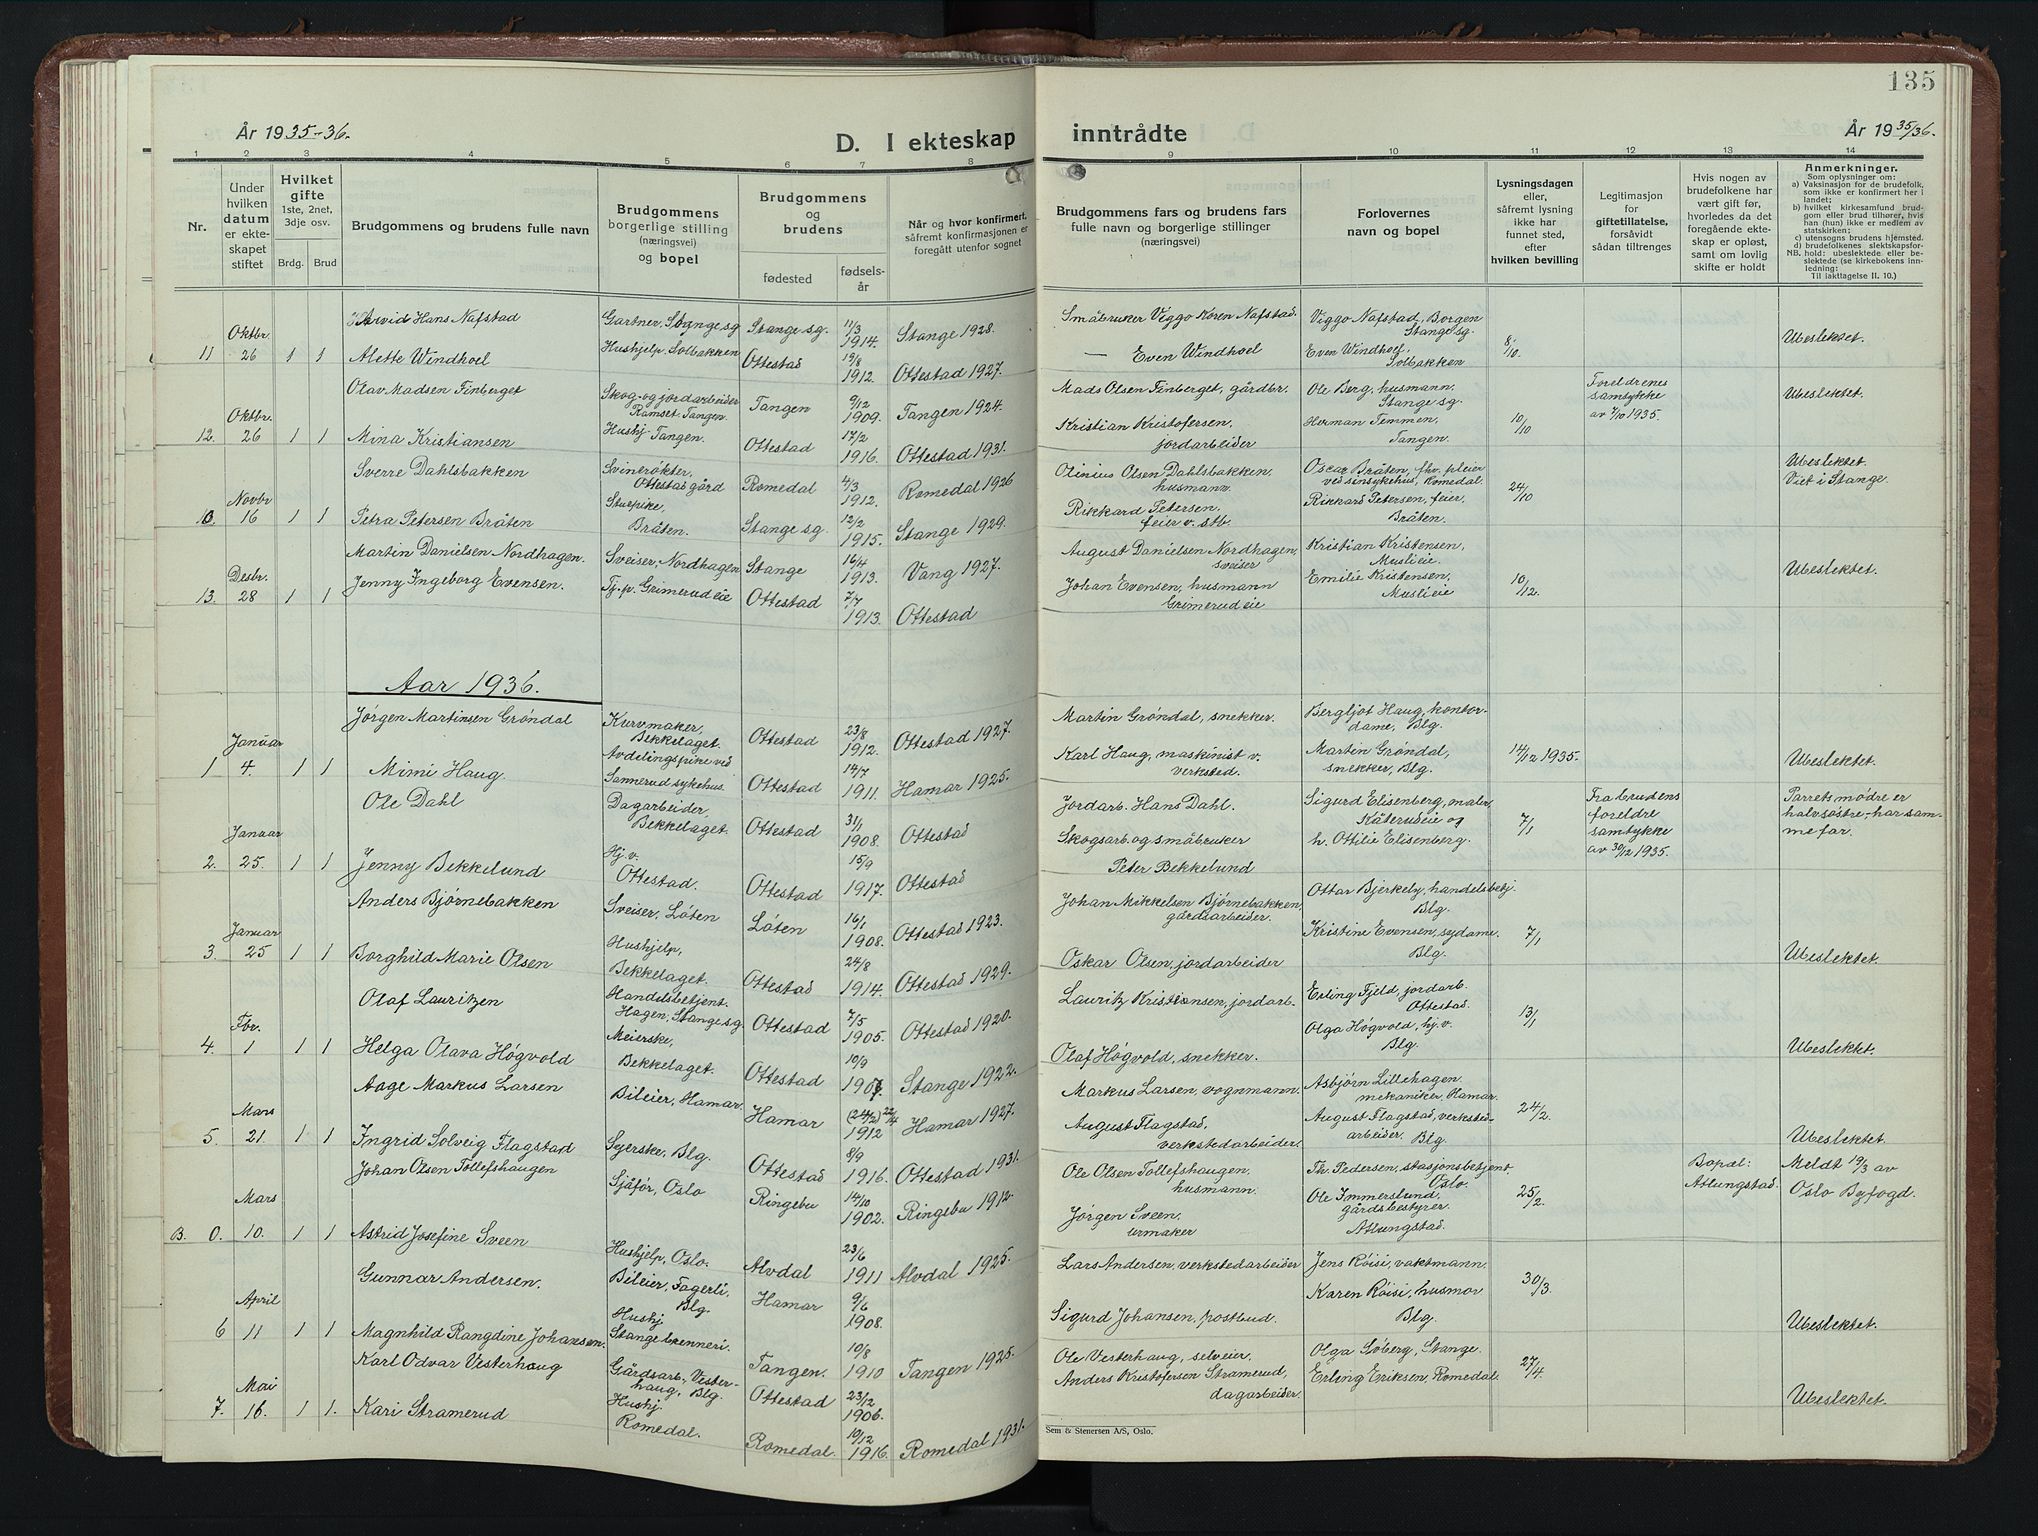 135
År 1935-36.
D. I ekteskap
inntrådte
År 1935/36.
1 2 3 4 5 6 7 8 9 10 11 12 13 14
Nr.
Under hvilken datum er ekteskapet stiftet
Hvilket gifte
1ste, 2net, 3dje osv.
Brdg. Brud
Brudgommens og brudens fulle navn
Brudgommens borgerlige stilling (næringsvei) og bopel
Brudgommens og brudens
fødested
fødselsår
Når og hvor konfirmert, såfremt konfirmasjonen er foregått utenfor sognet
Brudgommens fars og brudens fars fulle navn og borgerlige stillinger (næringsvei)
Forlovernes navn og bopel
Lysningsdagen eller, såfremt lysning ikke har funnet sted, efter hvilken bevilling
Legitimasjon for giftetillatelse, forsåvidt sådan tiltrenges
Hvis nogen av brudefolkene har vært gift før, hvorledes da det foregående ekteskap er opløst, samt om lovlig skifte er holdt
Anmerkninger.
Som oplysninger om:
a) Vaksinasjon for de brudefolk, som ikke er konfirmert her i landet;
b) hvilket kirkesamfund brudgom eller brud tilhører, hvis han (hun) ikke er medlem av statskirken;
c) utensogns brudens hjemsted.
d) brudefolkenes slektskapsforhold: ubeslektede eller beslektede (se kirkebokens innledning:
NB.
Til iakttagelse II. 10.)
11 Oktbr 26 1 1 Arvid Hans Nafstad Gartner, Stange sg Stange sg. 11/3 1914. Stange 1928. Småbruker Viggo Koren Nafstad. Viggo Nafstad, Borgen Stange sg. 8/10. Ubeslektet.
Alette Windhoel Hushjelp, Solbakken Ottestad 19/8 1912. Ottestad 1927. — Even Windhoel Even Windhoel, Solbakken
12. Oktbr 26 1 1 Olav Madsen Finberget Skog- og jordarbeider Ramset, Tangen Tangen 9/12 1909. Tangen 1924. Mads Olsen Finberget, gårdbr. Ole Berg, husmann, Stange sg. 10/10 Foreldrenes samtykke av 7/10 1935. Ubeslektet.
Mina Kristiansen Hushj. Tangen. Ottestad 17/2 1916. Ottestad 1931. Kristian Kristofersen, jordarbeider Herman Temmen, Tangen.
10. Novbr 16 1 1 Sverre Dahlsbakken Svinerøkter, Ottestad gård Romedal 4/3 1912. Romedal 1926 Olinius Olsen Dahlsbakken, husmann. Oscar Bråten, fhv. pleier ved sinsykehus, Romedal. 24/10 Ubeslektet. Viet i Stange.
Petra Petersen Bråten Stuepike, Bråten. Stange sg. 12/2 1915. Stange 1929. Rikkard Petersen, feier v. stb. Rikkard Petersen, feier, Bråten.
13. Desbr. 28 1 1 Martin Danielsen Nordhagen. Sveiser, Nordhagen Stange 16/4 1913. Vang 1927. August Danielsen Nordhagen, sveiser Kristian Kristensen, Muslieie. 10/12. Ubeslektet.
Jenny Ingeborg Evensen. Tj.p. Grimerudeie Ottestad 7/7 1913. Ottestad Johan Evensen, husmann Grimerudeie Emilie Kristensen, Muslieie
Aar 1936.
1 Januar 4. 1 1 Jørgen Martinsen Grøndal Kurvmaker, Bekkelaget. Ottestad 23/8 1912. Ottestad 1927. Martin Grøndal, snekker. Bergljot Haug, kontordame, Blg. 14/12 1935. Ubeslektet.
Mimi Haug Avdelingspike ved Sannerud sykehus. Ottestad 14/7 1911. Hamar 1925. Karl Haug, maskinist v. verksted. Martin Grøndal, snekker, Blg.
2. Januar 25. 1 1 Ole Dahl Dagarbeider, Bekkelaget. Ottestad 31/1 1908. Ottestad Jordarb. Hans Dahl. Sigurd Elisenberg, maler Käterudeie og 7/1 Fra brudens foreldre samtykke av 30/12 1935. Parrets mødre er halvsøstre, – har samme far.
Jenny Bekkelund Hj.v. Ottestad. Ottestad 15/9 1917. Ottestad Skogsarb. og småbruker Peter Bekkelund h. Ottilie Elisenberg.
3. Januar 25 1 1 Anders Bjørnebakken Sveiser, Løten Løten 16/1 1908. Ottestad 1923. Johan Mikkelsen Bjørnebakken, gårdsarbeider. Ottar Bjerkely, handelsbetj. Blg. 7/1 Ubeslektet.
Borghild Marie Olsen Hushjelp, Bekkelaget. Ottestad 24/8 1914. Ottestad 1929. Oskar Olsen, jordarbeider Kristine Evensen, sydame. Blg.
4. Fbr. 1 1 1 Olaf Lauritzen Handelsbetjent. Hagen, Stange sg Ottestad 7/5 1905. Ottestad 1920. Lauritz Kristiansen, jordarb. Erling Fjeld, jordarb. Ottestad. 13/1 Ubeslektet.
Helga Olava Høgvold Meierske, Bekkelaget. Ottestad 10/9 Stange 1922. Olaf Høgvold, snekker. Olga Høgvold, hj.v. Blg.
5. Mars 21 1 1 Aage Markus Larsen Bileier, Hamar. Hamar (24/2) 22/4 1912 Hamar 1927. Markus Larsen, vognmann. Asbjørn Lillehagen mekaniker, Hamar. 24/2. Ubeslektet.
Ingrid Solveig Flagstad Syerske, Blg. Ottestad 8/9 1916. Ottestad 1931. August Flagstad, verkstedarbeider. August Flagstad, verkstedarbeider. Blg.
B. 0. Mars 10. 1 1 Johan Olsen Tollefshaugen Sjåfør, Oslo Ringebu 14/10 1902. Ringebu 1912. Ole Olsen Tollefshaugen, husmann. Th. Pedersen, stasjonsbetjent Oslo. 25/2. Bopæl: Atlungstad. Meldt 19/3 av Oslo Byfogd.
Astrid Josefine Sveen Hushjelp, Oslo. Alvdal 23/6 1911 Alvdal 1925. Jørgen Sveen, urmaker Ole Immerslund, gårdsbestyrer Atlungstad.
6 April 11 1 1 Gunnar Andersen. Bileier, Fagerli, Blg. Hamar 9/6 1908. Lars Andersen, verkstedarbeider Jens Röisi, vaktmann. 30/3 Ubeslektet.
Magnhild Rangdine Johansen Hushj Stange brenneri. Tangen. 10/8 1910 Tangen 1925. Sigurd Johansen, postbud. Karen Röisi, husmor Blg.
7. Mai 16. 1 1. Karl Odvar Vesterhaug Gårdsarb, Vesterhaug, Blg. Ottestad 23/12 1906. Ole Vesterhaug, selveier. Olga Söberg, Stange. 27/4. Ubeslektet.
Kari Stramerud Hushj. Romedal. Romedal. 10/12 1916. Romedal 1931. Anders Kristofersen Stramerud, dagarbeider. Erling Eriksen, Romedal.
Sem & Stenersen A/S, Oslo.